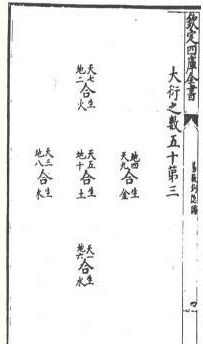 欽定四庫全書
易數鉤隱圖
大衍之數五十第三
地四生
天九合金
天七生
地二合火
天五生
地十合土
天一生
地六合水
天三生
地八合木